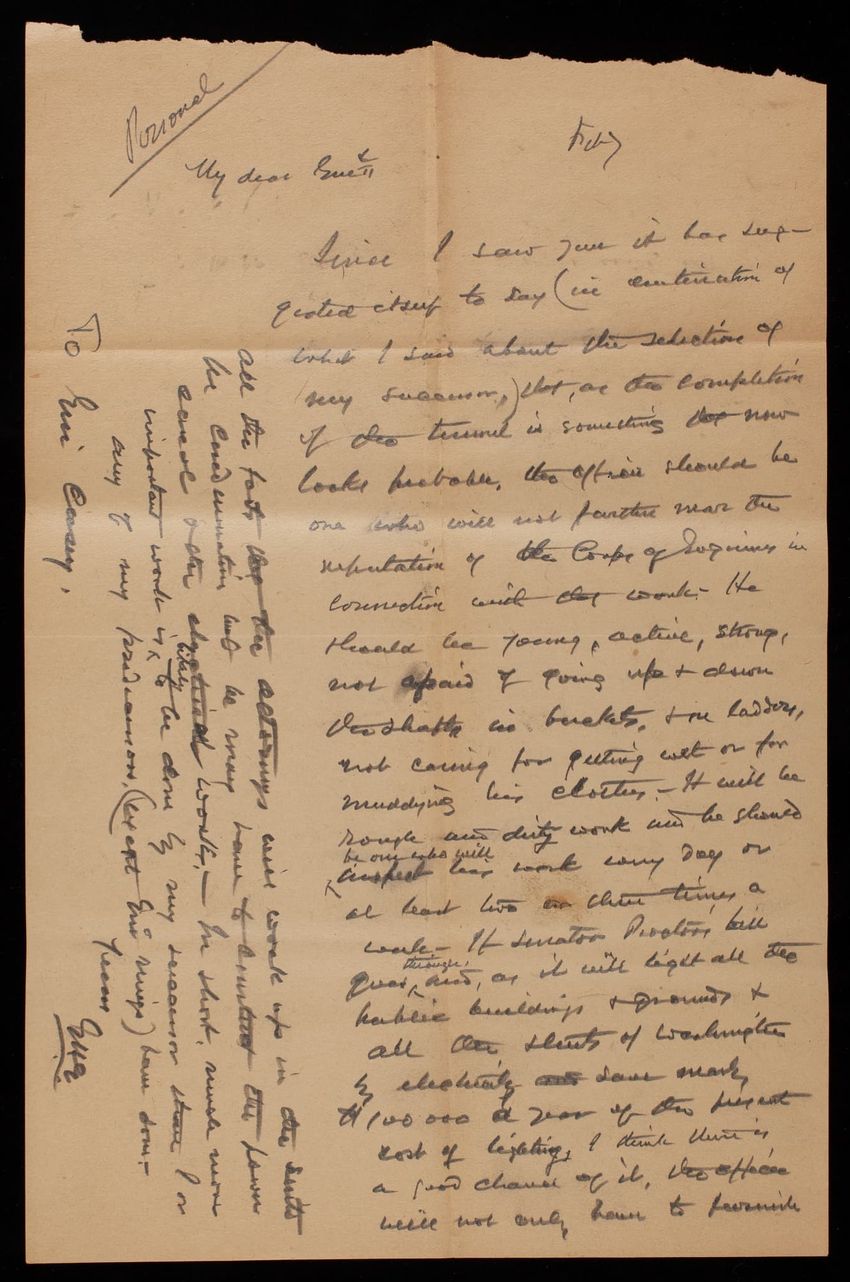 Personal
My dear Genl
Since I saw you it has sug-
gested itself to say (in continuation of
what I said about the selection of
my successor,) that, as the completion
of the tunnel is something that now
looks probable, the officer should be
one who will not further mar the
reputation of the Corps of Engineers in
connection with that work. He
should be young, active, strong,
not afraid of going up & down
the shafts in buckets, & on ladders,
not caring for getting wet or for
muddying his clothes. - It will be
rough and dirty work and he should
be one who will
inspect his work every day or
at least two or three times a
week. - If Senator Proctor's bill
goes through, and, as it will light all the
public buildings & grounds &
all the streets of Washington
by electricity and save nearly
$100 000 a year of the present
cost of lighting, I think there is
a good chance of it, the officer
will not only have to furnish
all the facts the attorneys will work up in the suits
he condemnation but he may have to construct the power
canal & the electrical works, - In short, much more
important work is likely to be done by my successor than I or
any of my predecessors, (except Genl Meigs) have done. -
Yours
To Genl Casey.